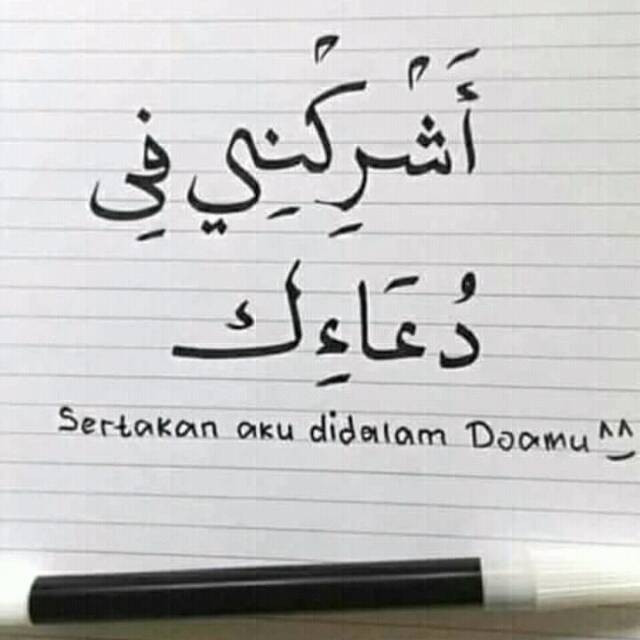 أَشْرِكْنِي فِي
دُعَاءِك
Sertakan aku didalam Doamu ^^